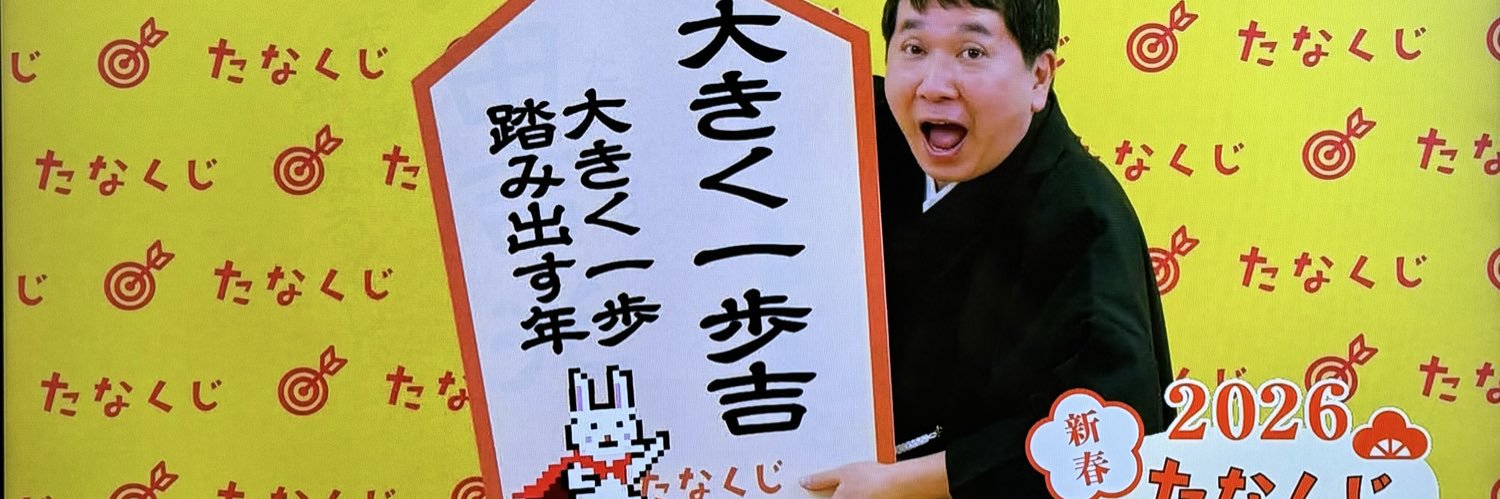 大きく一歩吉
大きく一歩
踏み出す年
たなくじ
新春
2026
たなくじ
たなくじ
たなくじ
たなくじ
たなくじ
たなくじ
たなくじ
たなくじ